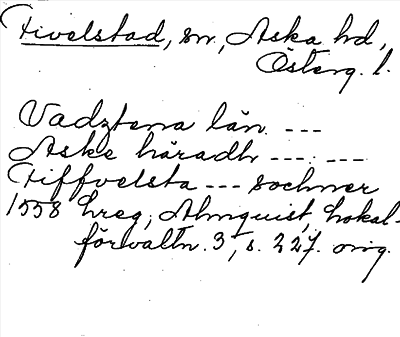 Fivelstad, sn, Aska hd,
Österg. l.
Vadztena län. ---
Aske häradh ---. ---
Fiffvelsta --- sochner
1558 hreg; Almquist, Lokal-
förvaltn. 3, s. 227. orig.